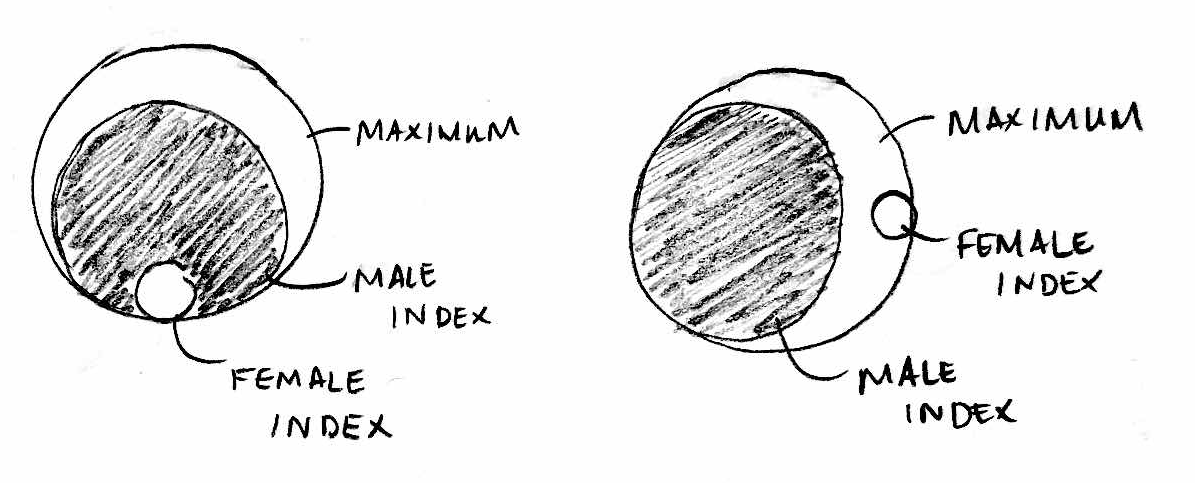 MAXIMUM
MALE
INDEX
FEMALE
INDEX
MAXIMUM
FEMALE
INDEX
MALE
INDEX